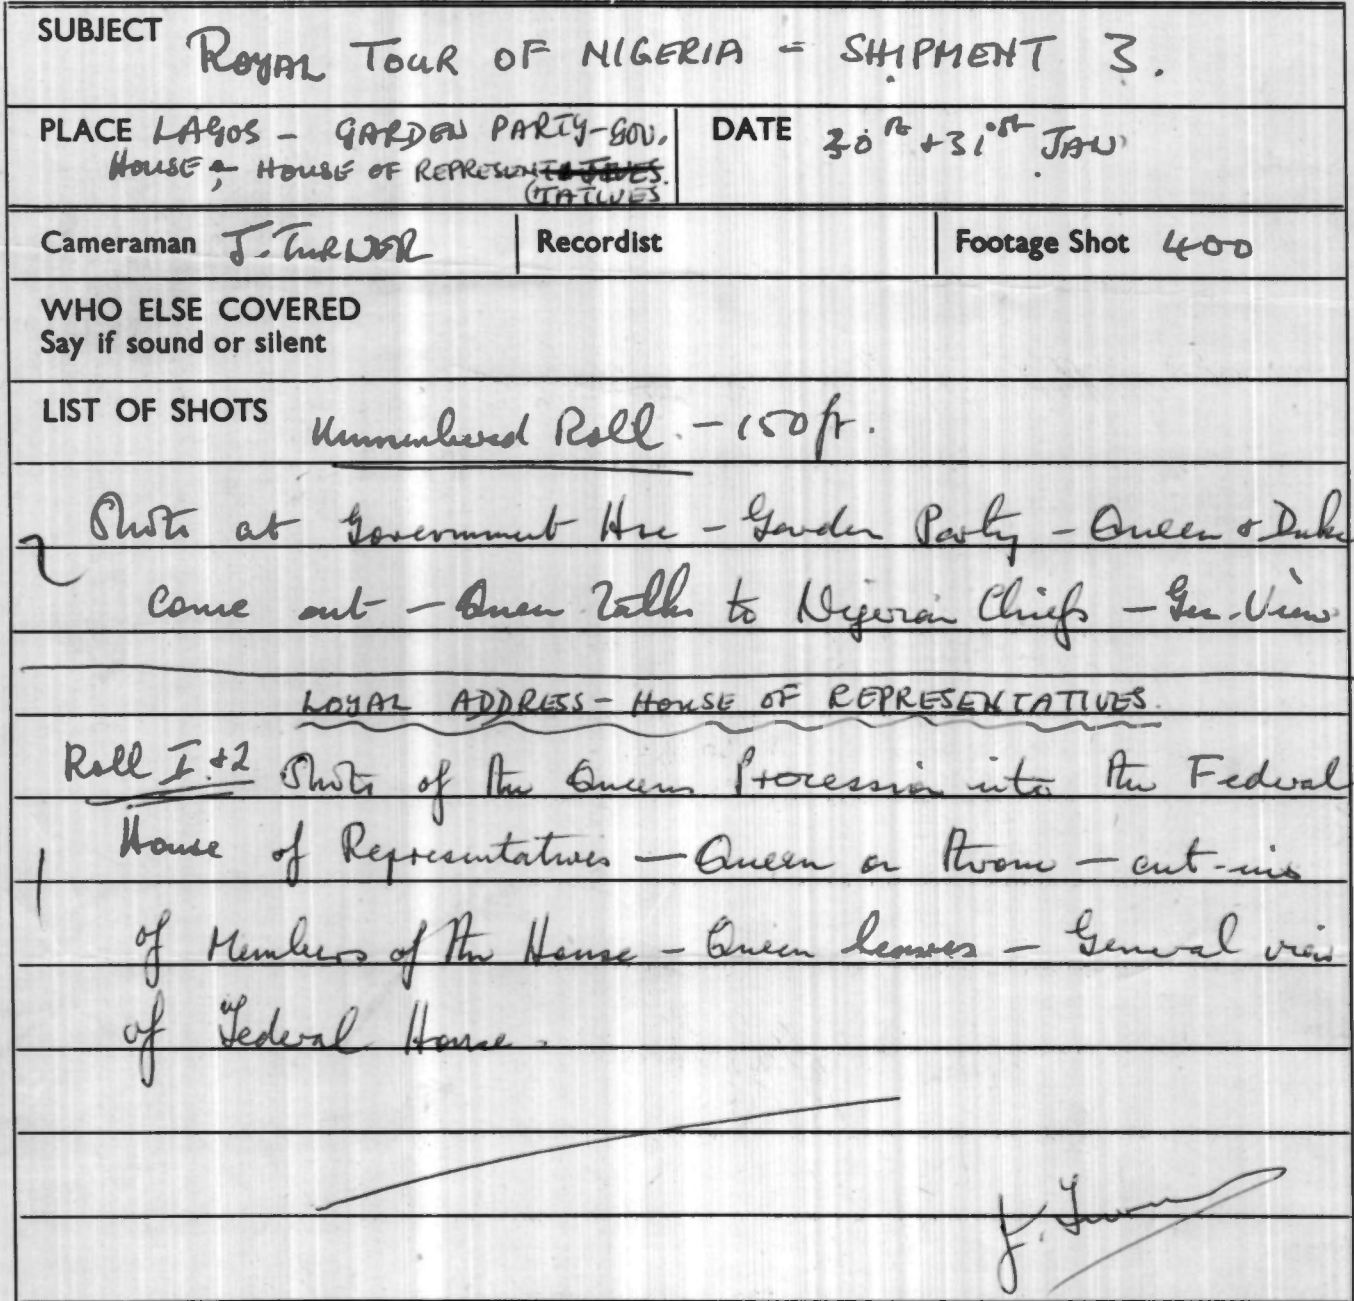 SUBJECT ROYAL TOUR OF NIGERIA - SHIPMENT 3.
PLACE LAGOS - GARDEN PARTY - GOV.
HOUSE & HOUSE OF REPRESEN
TATIVES
DATE 30th + 31st JAN
Cameraman J. TURNER
Recordist
Footage Shot 400
WHO ELSE COVERED
Say if sound or silent
LIST OF SHOTS Unnumbered Roll - 150 ft.
Shots at Government Hse - Garden Party - Queen & Duke
come out - Queen talks to Nigerian Chiefs - Gen. View
LOYAL ADDRESS - HOUSE OF REPRESENTATIVES
Roll I + 2 Shots of the Queens Procession into the Federal
House of Representatives - Queen on throne - cut-ins
of Members of the House - Queen leaves - General view
of Federal House.
J. Turner